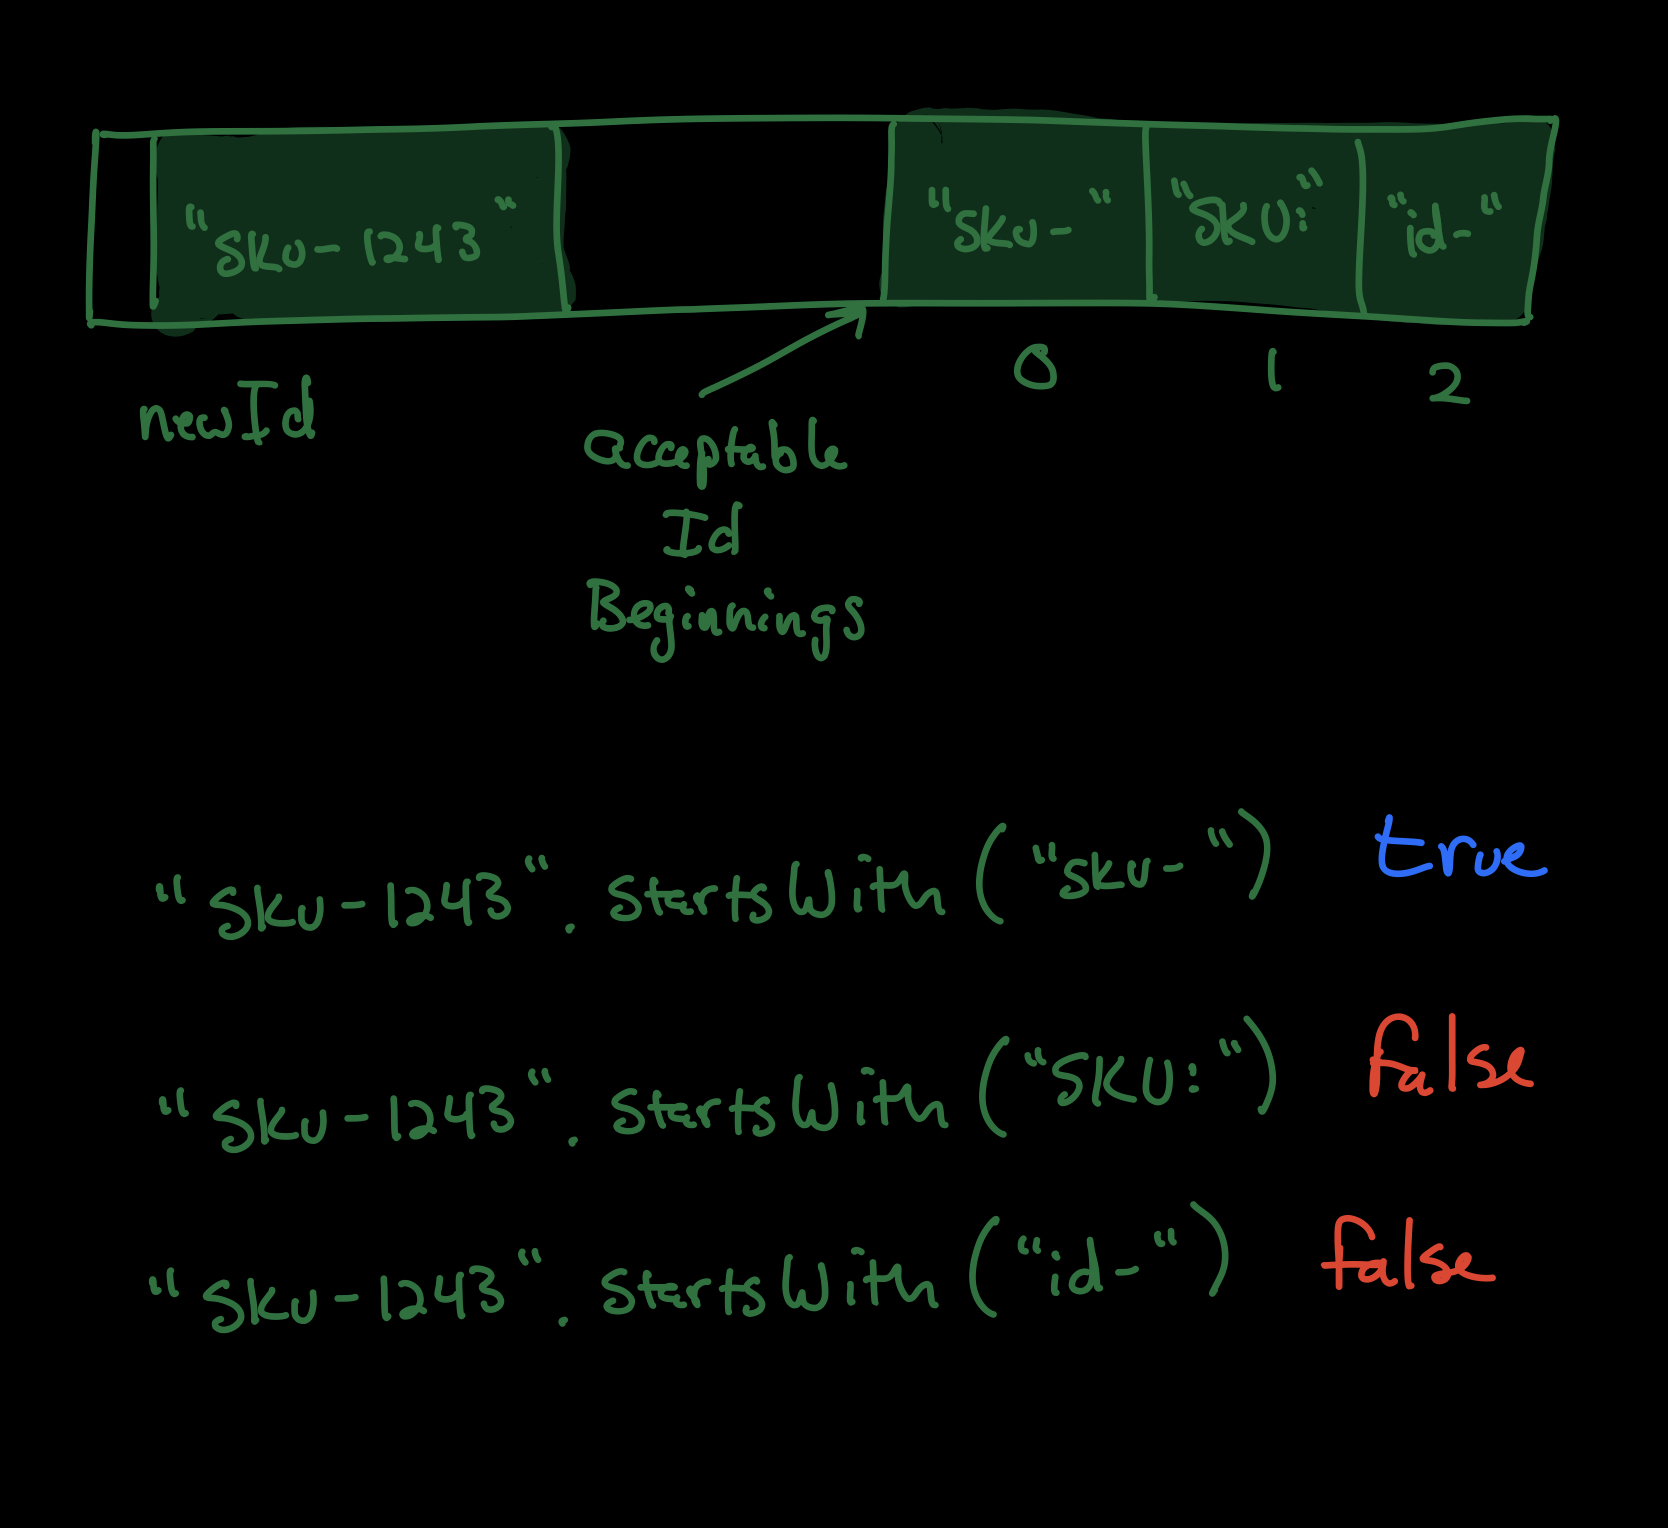 "sku-1243" "sku-" "SKU:" "id-"
0 1 2
newId
acceptable
Id
Beginnings
"sku-1243". startsWith("sku-") true
"sku-1243". startsWith("SKU:") false
"sku-1243". startsWith("id-") false